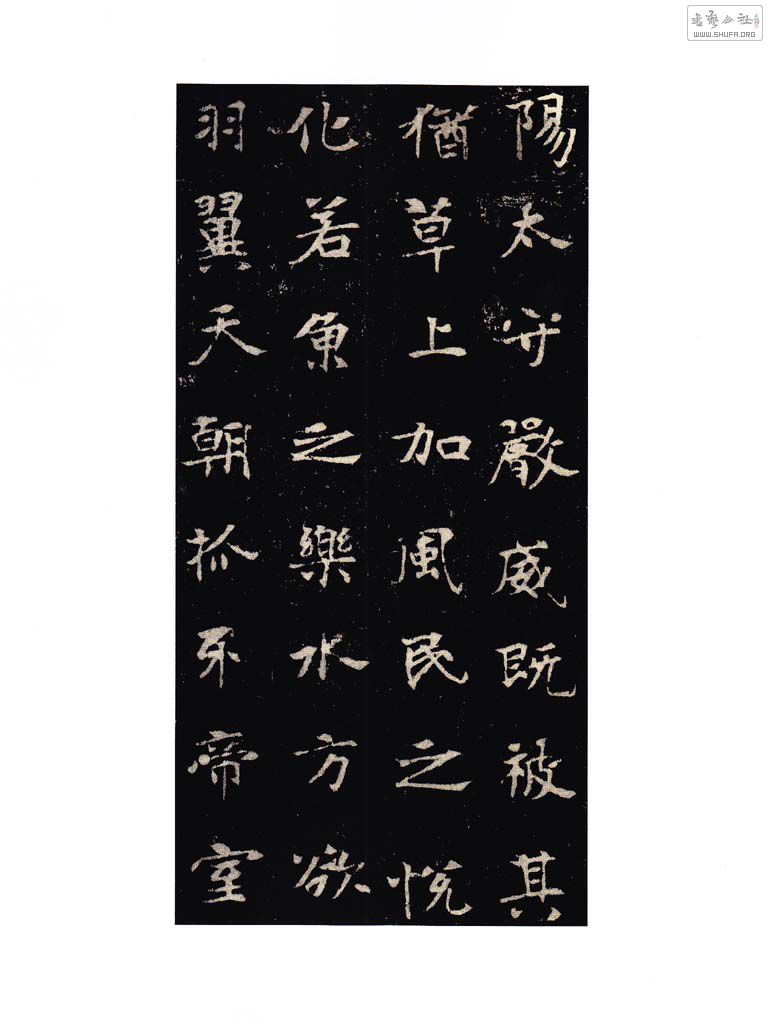 陽太守嚴威既被其
猶草上加風民之悅
化若魚之樂水方欲
羽翼天朝抓牙帝室
書藝公社
WWW.SHUFA.ORG